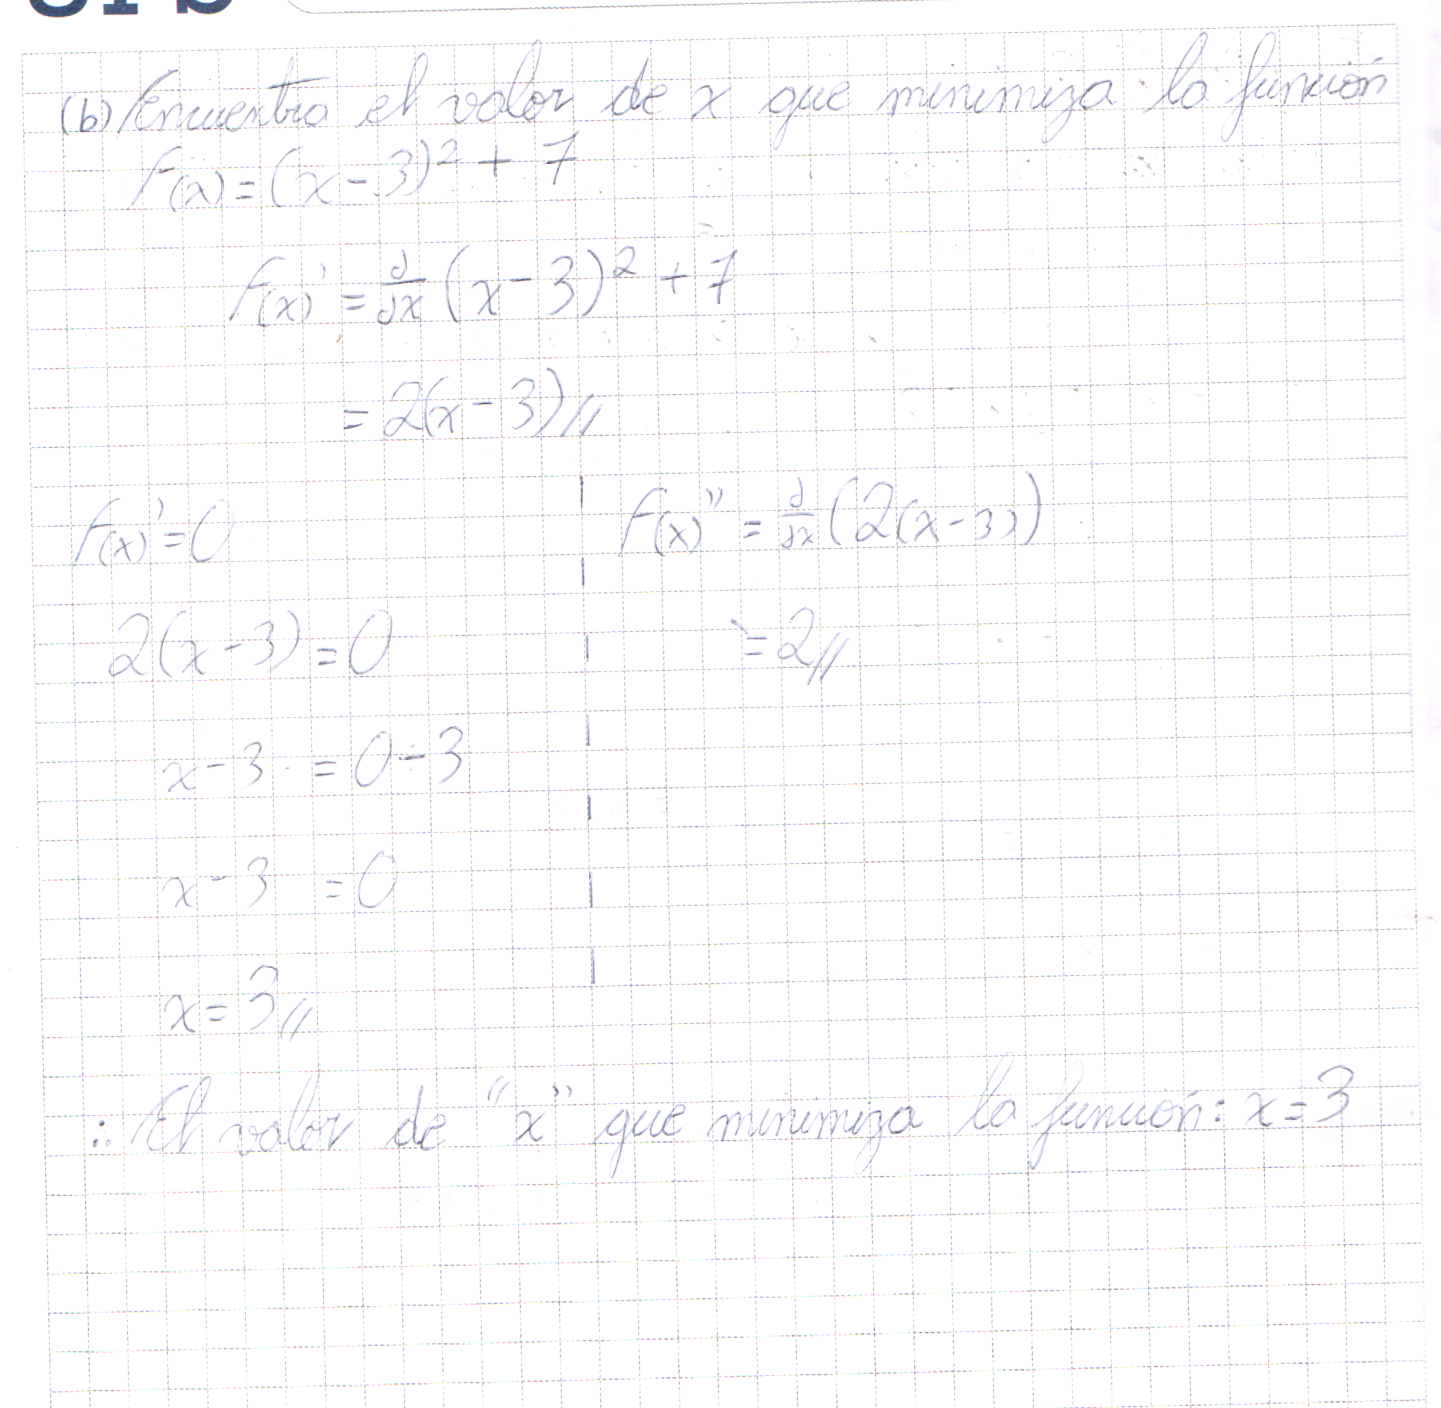 (b) Encuentra el valor de x que minimiza la función
F(x) = (x-3)² + 7
F(x)' = d/dx (x-3)² + 7
= 2(x-3)//
F(x)' = 0
2(x-3) = 0
x-3 = 0-3
x-3 = 0
x = 3//
F(x)'' = d/dx (2(x-3))
= 2//
∴ El valor de "x" que minimiza la función: x=3